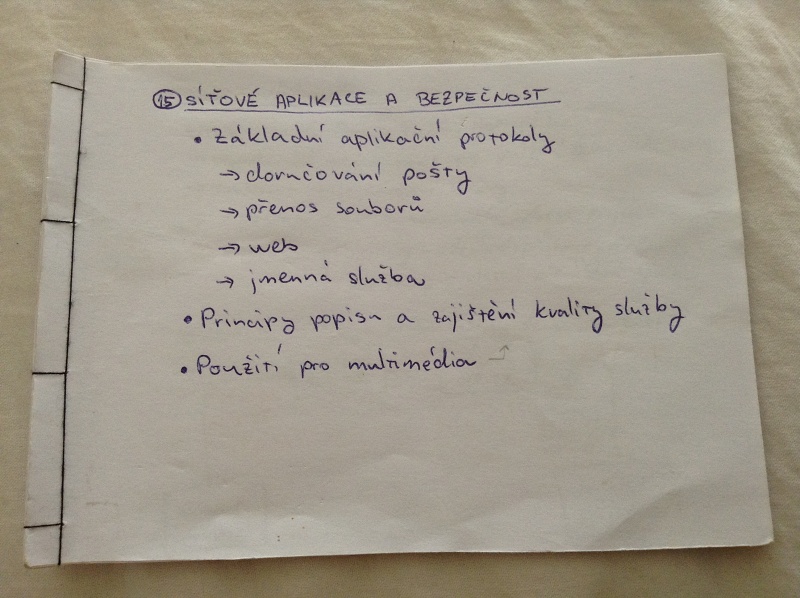 15 SÍŤOVÉ APLIKACE A BEZPEČNOST
• Základní aplikační protokoly
→ doručování pošty
→ přenos souborů
→ web
→ jmenná služba
• Principy popisu a zajištění kvality služby
• Použití pro multimédia